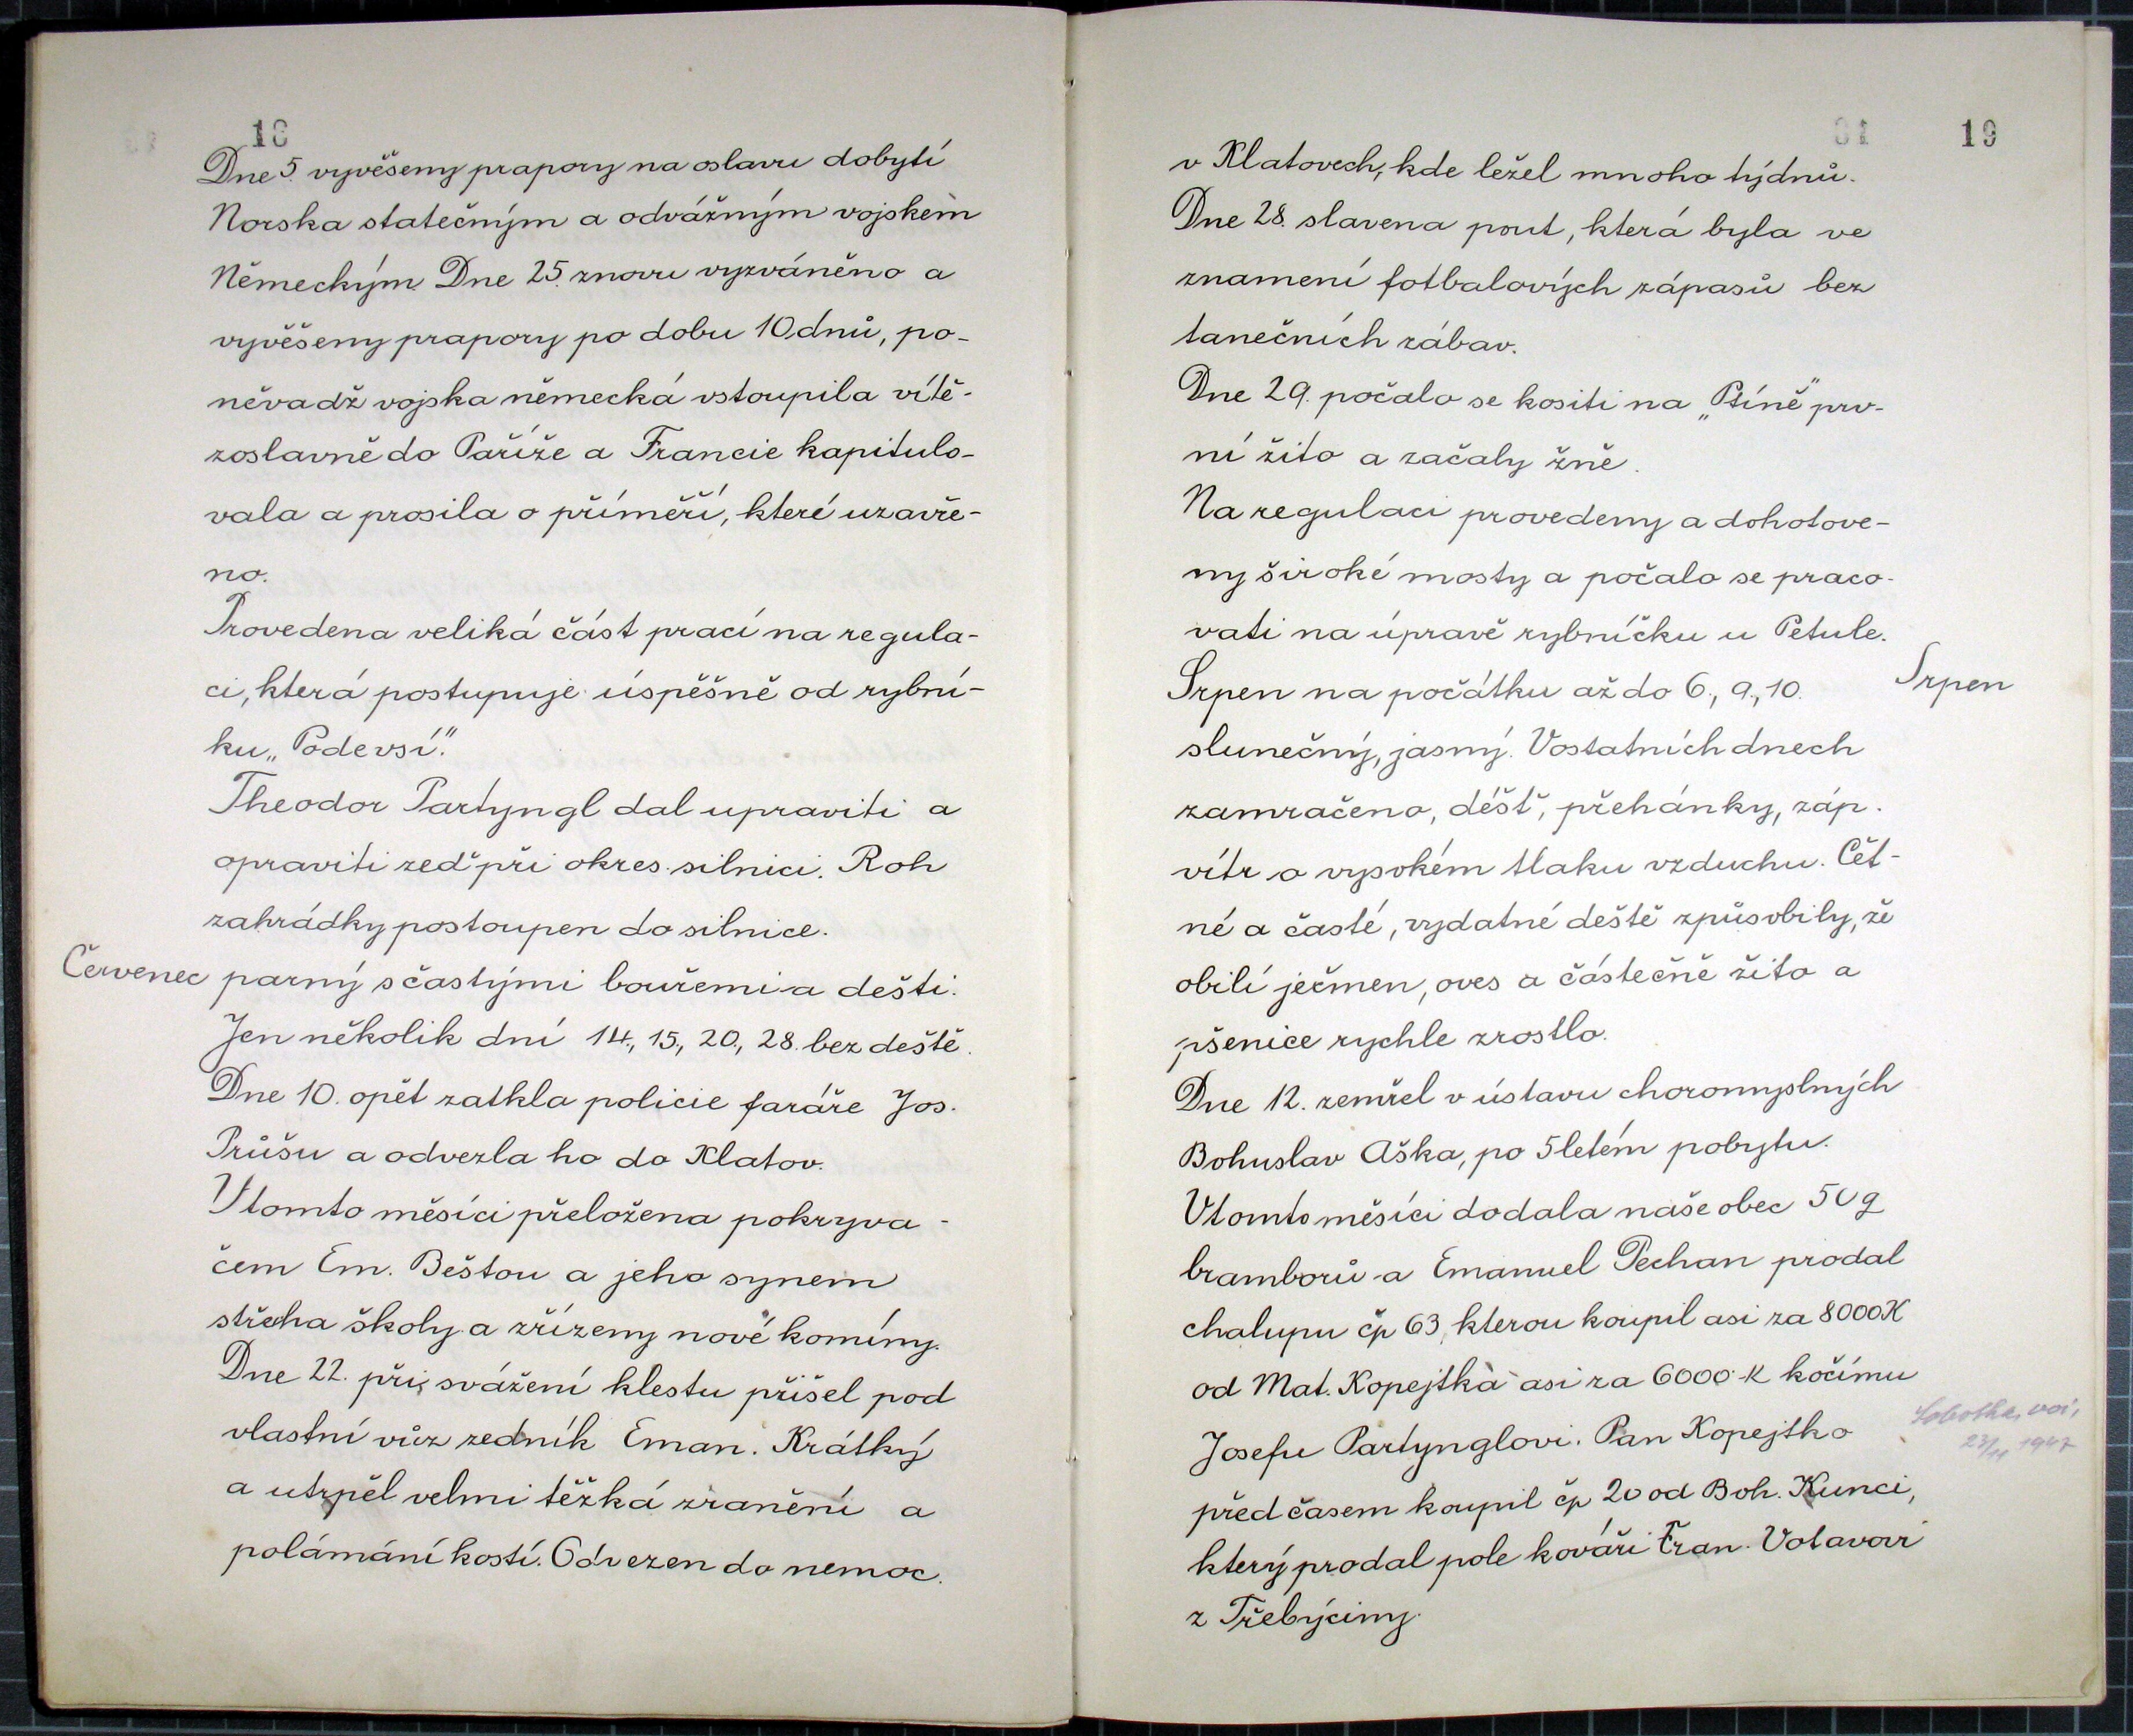 18
Dne 5. vyvěšeny prapory na oslavu dobytí
Norska statečným a odvážným vojskem
Německým. Dne 25. znovu vyzváněno a
vyvěšeny prapory po dobu 10 dnů, po-
něvadž vojska německá vstoupila vítě-
zoslavně do Paříže a Francie kapitulo-
vala a prosila o příměří, které uzavře-
no.
Provedena veliká část prací na regula-
ci, která postupuje úspěšně od rybní-
ku „Podevsí“.
Theodor Partyngl dal upraviti a
opraviti zeď při okres. silnici. Roh
zahrádky postoupen do silnice.
Červenec parný s častými bouřemi a dešti.
Jen několik dní 14., 15., 20., 28. bez deště.
Dne 10. opět zatkla policie faráře Jos.
Průšu a odvezla ho do Klatov.
V tomto měsíci přeložena pokryva-
čem Em. Beštou a jeho synem
střecha školy a zřízeny nové komíny.
Dne 22. při svážení klestu přišel pod
vlastní vůz zedník Eman. Krátký
a utrpěl velmi těžká zranění a
polámání kostí. Odvezen do nemoc.
19
v Klatovech, kde ležel mnoho týdnů.
Dne 28. slavena pout, která byla ve
znamení fotbalových zápasů bez
tanečních zábav.
Dne 29. počalo se kositi na „Ptíně“ prv-
ní žito a začaly žně.
Na regulaci provedeny a dohotove-
ny široké mosty a počalo se praco-
vati na úpravě rybníčku u Petule.
Srpen na počátku až do 6., 9., 10. Srpen
slunečný, jasný. V ostatních dnech
zamračeno, déšť, přehánky, záp.
vítr o vysokém tlaku vzduchu. Čet-
né a časté, vydatné deště způsobily, že
obilí ječmen, oves a částečně žito a
pšenice rychle zrostlo.
Dne 12. zemřel v ústavu choromyslných
Bohuslav Aška, po 5letém pobytu.
V tomto měsíci dodala naše obec 50 q
bramborů a Emanuel Pechan prodal
chalupu čp 63, kterou koupil asi za 8000 K
od Mat. Kopejtka asi za 6000 K kočímu
Josefu Partynglovi. Pan Kopejtko
před časem koupil čp 20 od Boh. Kunci,
který prodal pole kováři Fran. Votavovi
z Třebýciny.
23/11 1947